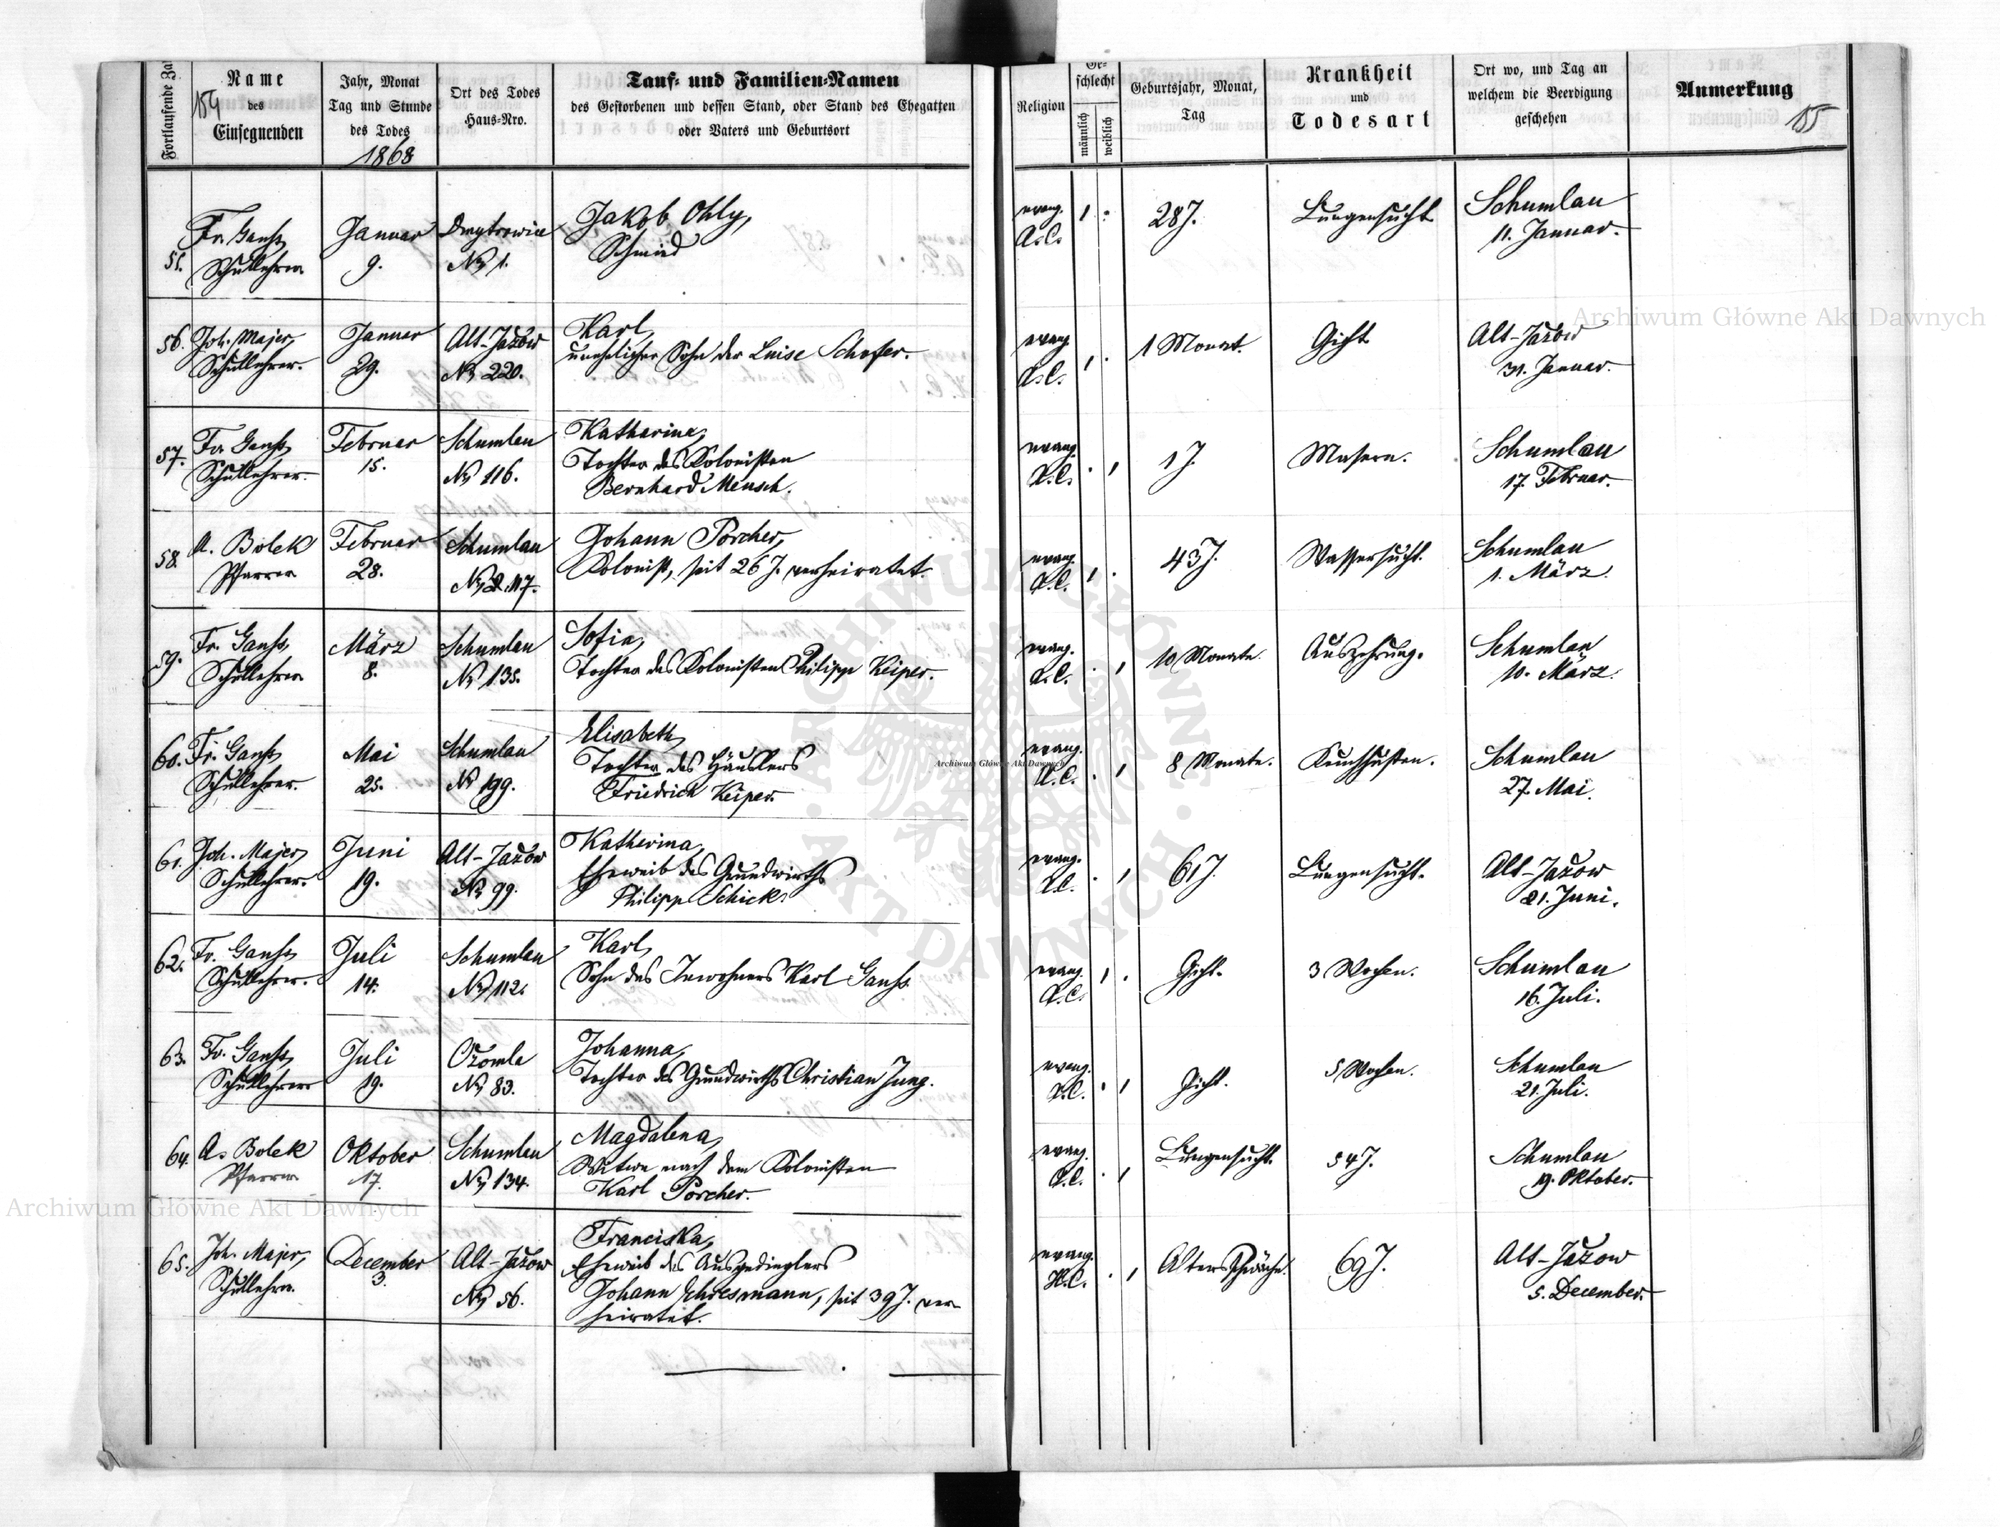 154
Fortlaufende Za
Name
des
Einsegnenden
Jahr, Monat
Tag und Stunde
des Todes
1868
Ort des Todes
Haus-Nro.
Tauf- und Familien-Namen
des Gestorbenen und dessen Stand, oder Stand des Ehegatten
oder Vaters und Geburtsort
Religion
Ge-
schlecht
männlich
weiblich
Geburtsjahr, Monat,
Tag
Krankheit
und
Todesart
Ort wo, und Tag an
welchem die Beerdigung
geschehen
Anmerkung
155
Fr. Ganß,
Schullehrer
Januar
9.
Dmytrowice
No 1.
Jakob Ohly,
Schmied
evang.
A.C.
28 J.
Lungensucht
Schumlau
11. Januar.
56.
Joh. Majer,
Schullehrer.
Januar
29.
Alt-Jażow
No 220.
Karl,
unehelicher Sohn der Luise Schofer.
evang
A.C.
1 Monat.
Gicht
Alt-Jażow
31. Januar.
57.
Fr. Ganß,
Schullehrer.
Februar
15.
Schumlau
No 116.
Katharina,
Tochter des Kolonisten
Bernhard Mensch.
evang.
A.C.
1 J.
Masern.
Schumlau
17. Februar.
58.
A. Bolek
Pfarrer
Februar
28.
Schumlau
No 117.
Johann Porcher,
Kolonist, seit 26 J. verheiratet.
evang.
A.C.
43 J.
Wassersucht.
Schumlau
1. März.
59.
Fr. Ganß,
Schullehrer
März
8.
Schumlau
No 135.
Sofia,
Tochter des Kolonisten Philipp Keiper.
evang.
A.C.
10 Monate.
Auszehrung.
Schumlau
10. März.
60.
Fr. Ganß,
Schullehrer.
Mai
25.
Schumlau
No 199.
Elisabeth,
Tochter des Häuslers
Friedrich Keiper.
evang.
A.C.
8 Monate.
Keuchhusten.
Schumlau
27. Mai.
61.
Joh. Majer,
Schullehrer.
Juni
19.
Alt-Jażow
No 99.
Katherina,
Eheweib des Grundwirths
Philipp Schick.
evang.
A.C.
61 J.
Lungensucht.
Alt-Jażow
21. Juni.
62.
Fr. Ganß,
Schullehrer.
Juli
14.
Schumlau
No 112.
Karl,
Sohn des Inwohners Karl Ganß.
evang.
A.C.
Gicht.
3 Wochen.
Schumlau
16. Juli.
63.
Fr. Ganß,
Schullehrer
Juli
19.
Ożomla
No 83.
Johanna,
Tochter des Grundwirths Christian Jung.
evang.
A.C.
Gicht.
5 Wochen.
Schumlau
21. Juli.
64.
A. Bolek
Pfarrer
Oktober
17.
Schumlau
No 134.
Magdalena,
Witwe nach dem Kolonisten
Karl Porcher.
evang.
A.C.
Lungensucht.
54 J.
Schumlau
19. Oktober.
65.
Joh. Majer,
Schullehrer.
December
3.
Alt-Jażow
No 56.
Franciska,
Eheweib des Ausgedinglers
Johann Ehresmann, seit 39 J. ver-
heiratet.
evang.
H.C.
Altersschwäche.
69 J.
Alt-Jażow
5. December.
Archiwum Główne Akt Dawnych
Archiwum Główne Akt Dawnych
Archiwum Główne Akt Dawnych
ARCHIWUM GŁÓWNE · AKT DAWNYCH ·